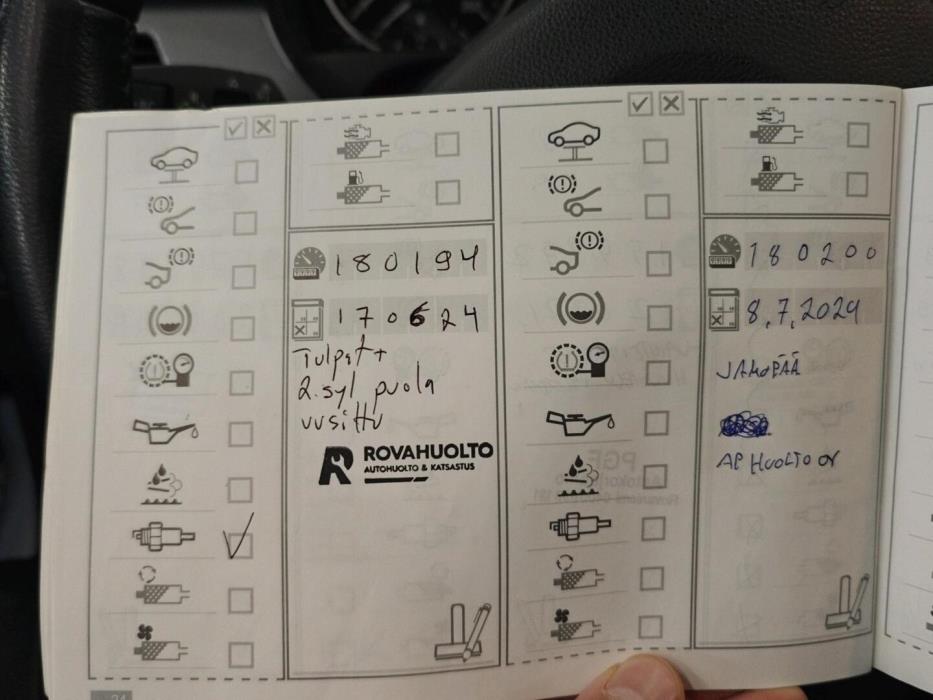 180194
170624
Tulpat +
2.syl puola
uusittu
ROVAHUOLTO
AUTOHUOLTO & KATSASTUS
24
180200
8.7.2024
JAKOPÄÄ
AP HUOLTO OY